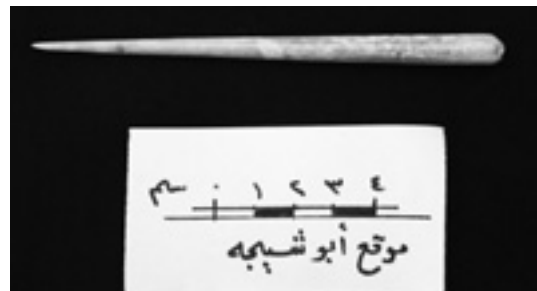 سم ٠ ١ ٢ ٣ ٤
موقع أبو ثسيجه